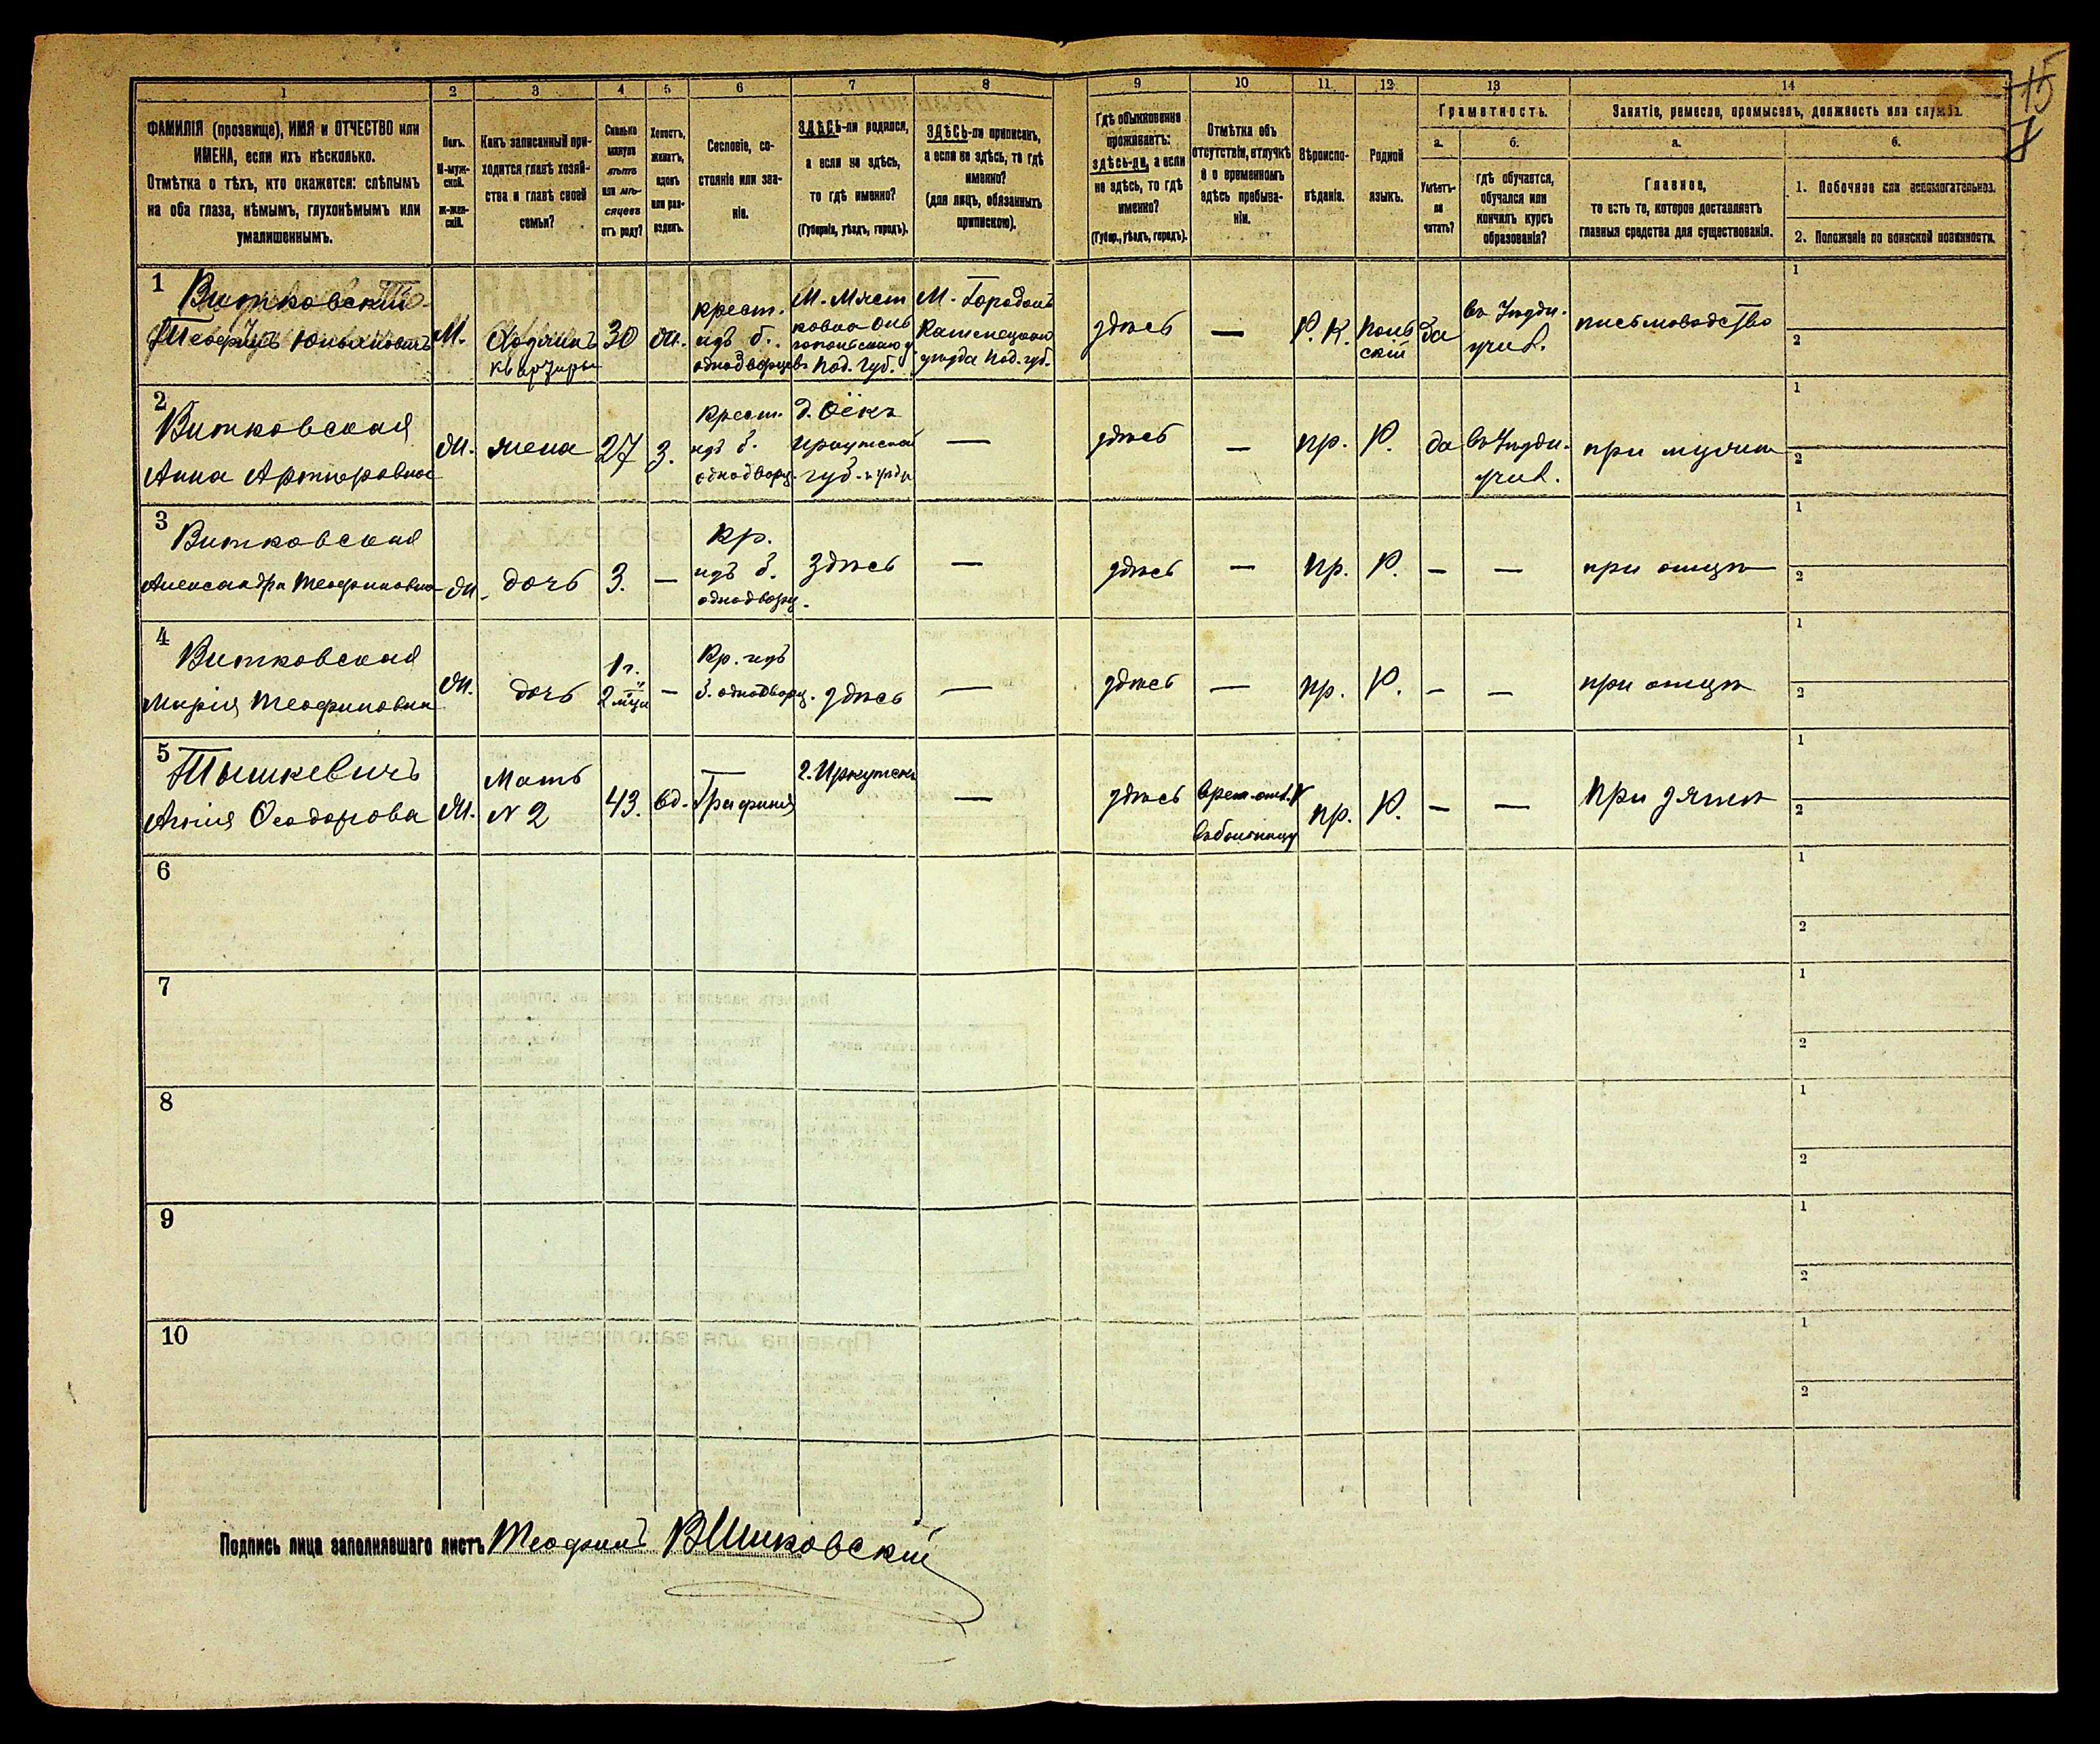 1 2 3 4 5 6 7 8 9 10 11 12 13 14
ФАМИЛІЯ (прозвище), ИМЯ и ОТЧЕСТВО или
ИМЕНА, если ихъ нѣсколько.
Отмѣтка о тѣхъ, кто окажется: слѣпымъ
на оба глаза, нѣмымъ, глухонѣмымъ или
умалишеннымъ.
Полъ.
М-муж-
ской.
ж-жен-
скій.
Какъ записанный при-
ходится главѣ хозяй-
ства и главѣ своей
семьи?
Сколько
минуло
лѣтъ
или мѣ-
сяцевъ
отъ роду?
Холостъ,
женатъ,
вдовъ
или раз-
веденъ.
Сословіе, со-
стояніе или зва-
ніе.
ЗДѢСЬ-ли родился,
а если не здѣсь,
то гдѣ именно?
(Губернія, уѣздъ, городъ).
ЗДѢСЬ-ли приписанъ,
а если не здѣсь, то гдѣ
именно?
(для лицъ, обязанныхъ
припискою).
Гдѣ обыкновенно
проживаетъ:
здѣсь-ли, а если
не здѣсь, то гдѣ
именно?
(Губер., уѣздъ, городъ).
Отмѣтка объ
отсутствіи, отлучкѣ
и о временномъ
здѣсь пребыва-
ніи.
Вѣроиспо-
вѣданіе.
Родной
языкъ.
Грамотность.
а.
Умѣетъ-
ли
читать?
б.
гдѣ обучается,
обучался или
кончилъ курсъ
образованія?
Занятіе, ремесло, промыселъ, должность или служба.
а.
Главное,
то есть то, которое доставляетъ
главныя средства для существованія.
б.
1. Побочное или вспомогательное.
2. Положеніе по воинской повинности.
15
1
Витковскій
Теофилъ Юльяновичъ
М.
Хозяинъ
квартиры
30
ж.
крест.
изъ б.
однодворцевъ
Под. губ.
М. Городокъ
Каменецкаго
уѣзда Под. губ.
здѣсь
—
Р. К.
Поль
скій
да
учил.
письмоводство
1
2
2
Витковская
Анна Артюровна
ж.
жена
27
З.
Крест.
изъ б.
однодворц.
д. Оёкъ
Иркутской
губ.
—
здѣсь
—
пр.
Р.
да
учил.
при мужѣ
1
2
3
Витковская
Александра Теофиловна
ж.
дочь
3.
—
Кр.
изъ б.
однодворц.
Здѣсь
—
здѣсь
—
пр.
Р.
—
—
при отцѣ
1
2
4
Витковская
Марія Теофиловна
ж.
дочь
1 г.
и
2 мѣц
—
Кр. изъ
б. однодворц.
здѣсь
—
здѣсь
—
пр.
Р.
—
—
при отцѣ
1
2
5
Тышкевичъ
Ѳеодорова
ж.
Мать
N 2
43.
вд.
Графиня
г. Иркутскъ
—
здѣсь
въ больницу
пр.
Р.
—
—
При зятѣ
1
2
6
1
2
7
1
2
8
1
2
9
1
2
10
1
2
Подпись лица заполнявшаго листъ Теофилъ Витковскій